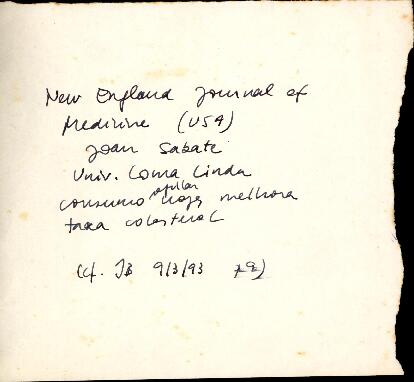 New England Journal of
Medicine (USA)
Joan Sabate
Univ. Loma Linda
consumo nozes melhora
taxa colesterol
(cf. JB 9/3/93